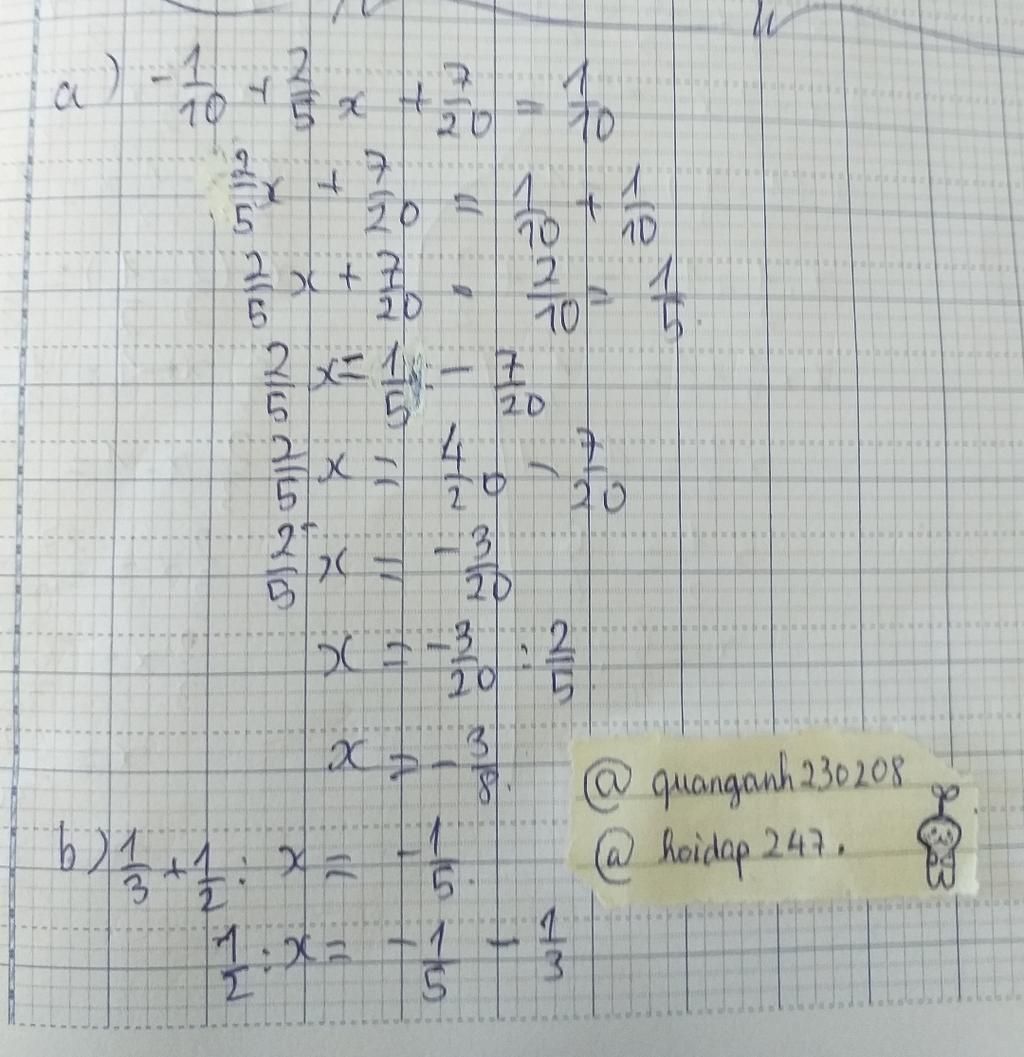 a) -1/10 + 2/5 x + 7/20 = 1/10
2/5 x + 7/20 = 1/10 + 1/10
2/5 x + 7/20 = 2/10 = 1/5.
2/5 x = 1/5 - 7/20
2/5 x = 4/20 - 7/20
2/5 x = -3/20
x = -3/20 : 2/5.
x = -3/8.
@ quanganh230208
@ hoidap 247.
b) 1/3 + 1/2 : x = -1/5.
1/2 : x = -1/5 - 1/3